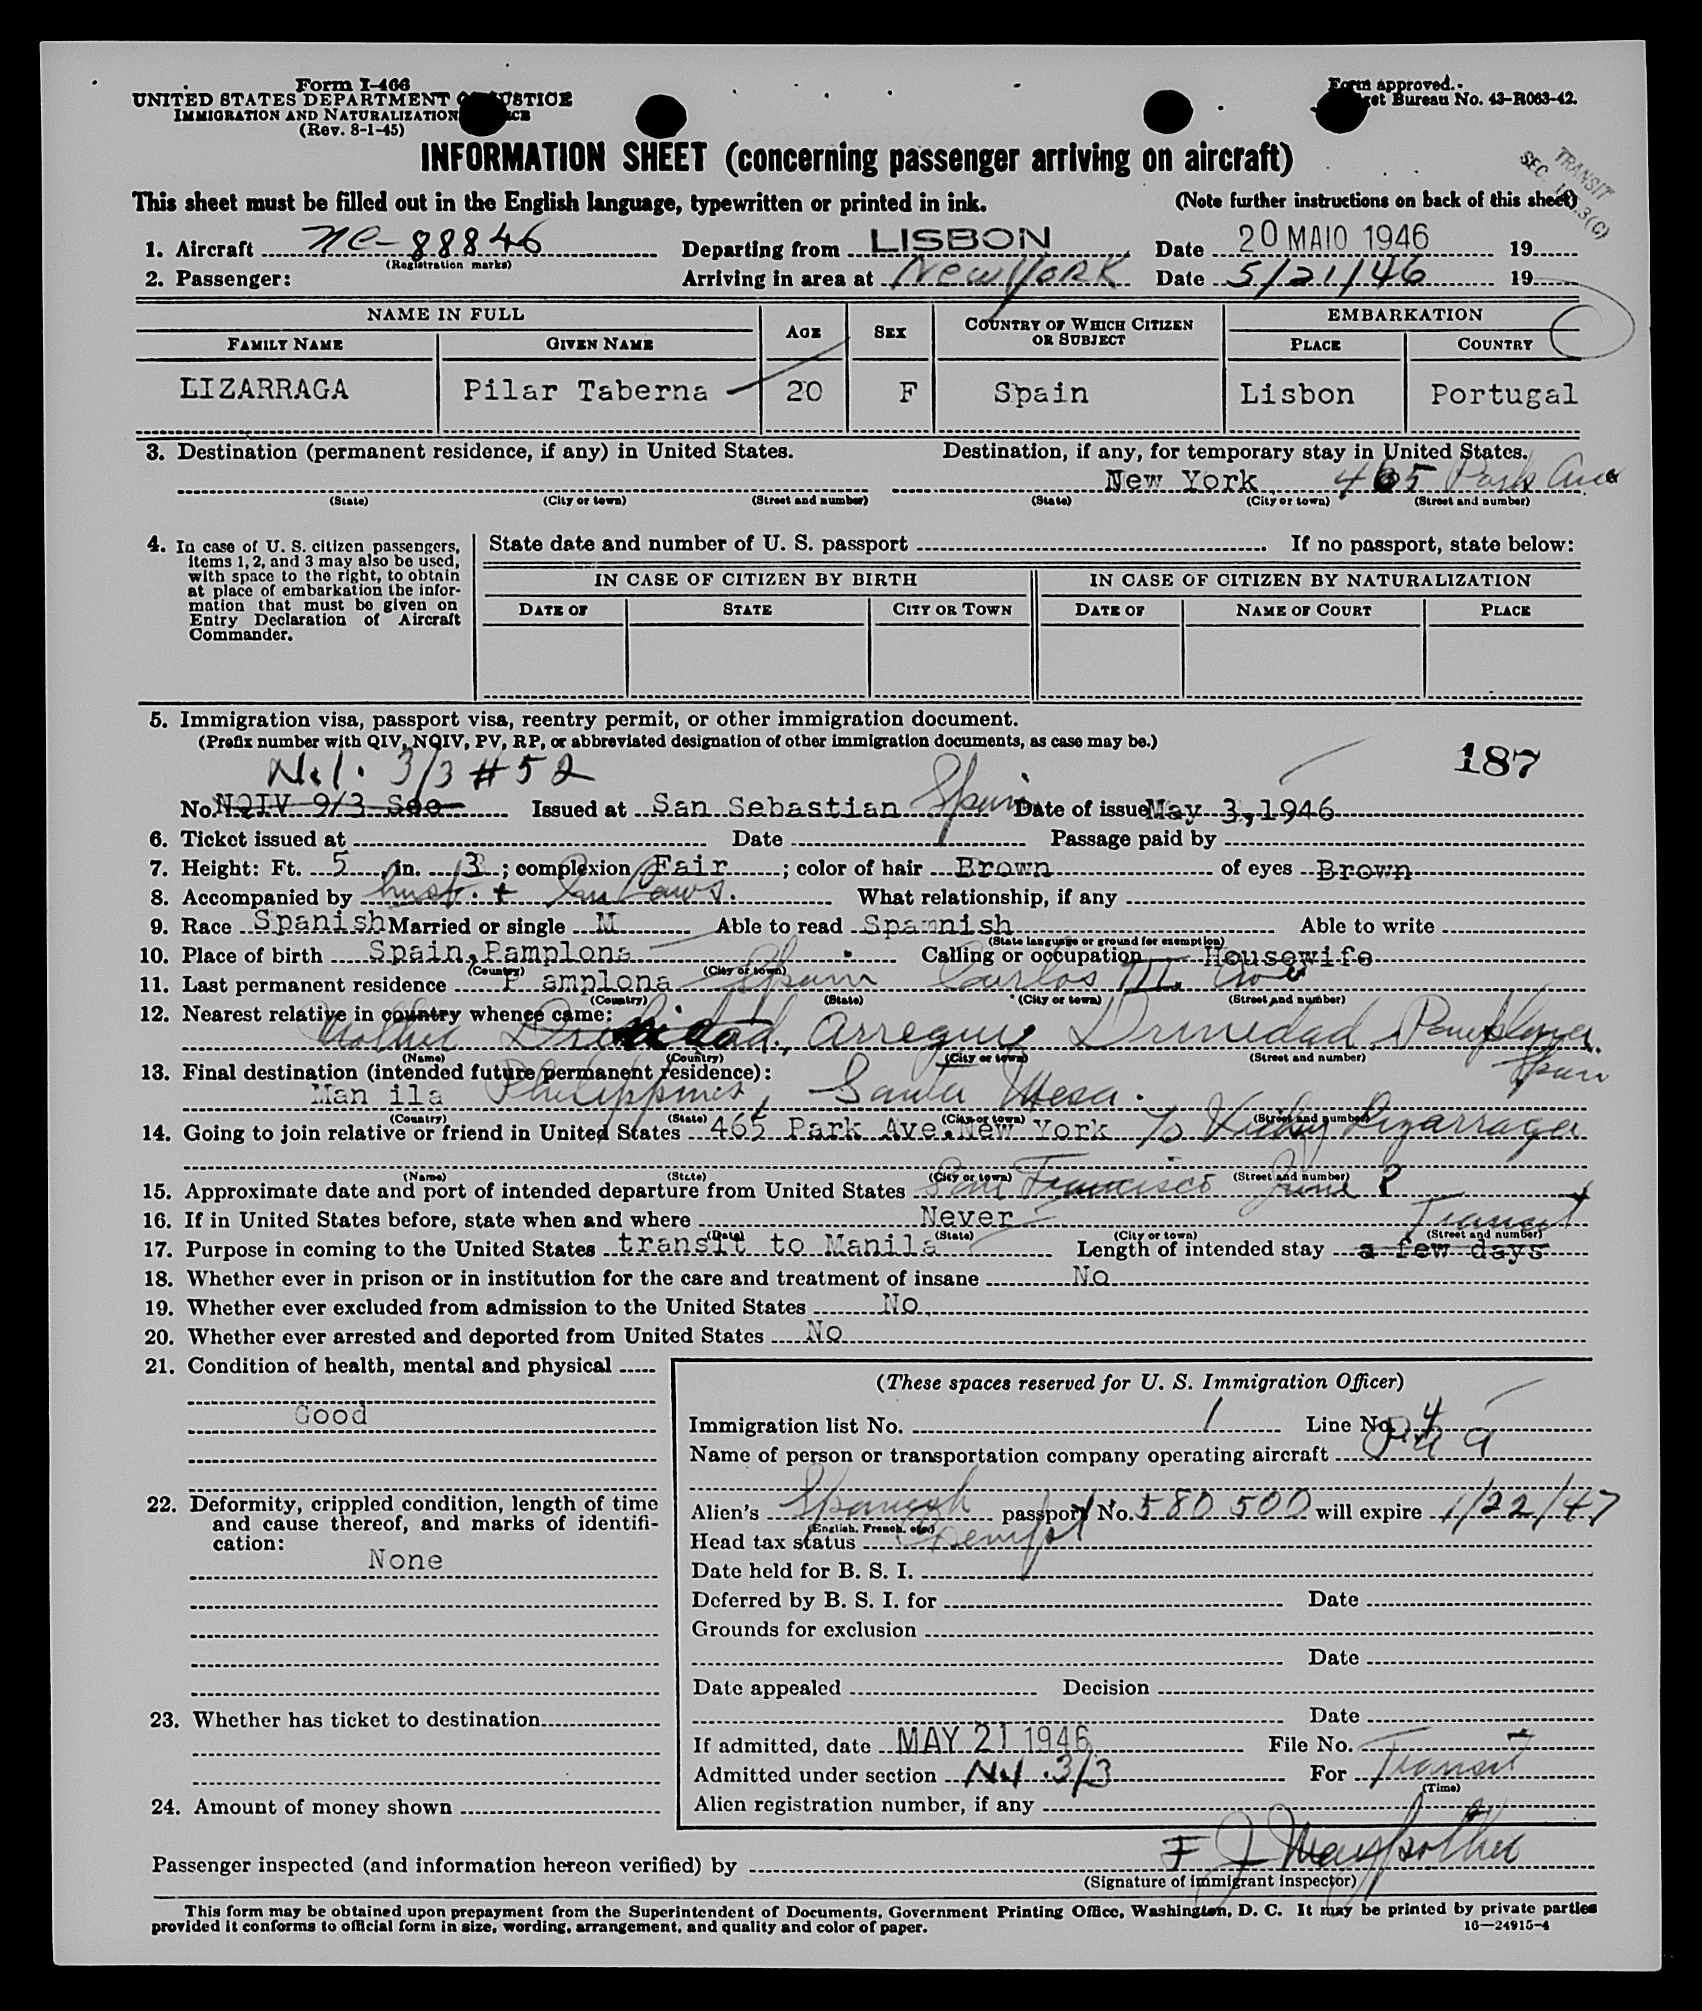 Form I-466
UNITED STATES DEPARTMENT OF JUSTICE
IMMIGRATION AND NATURALIZATION SERVICE
(Rev. 8-1-45)
Form approved.
Budget Bureau No. 43-R063-42.
INFORMATION SHEET (concerning passenger arriving on aircraft)
TRANSIT
SEC. 3(C)
This sheet must be filled out in the English language, typewritten or printed in ink. (Note further instructions on back of this sheet)
1. Aircraft NC-88846 Departing from LISBON Date 20 MAIO 1946 19
(Registration marks)
2. Passenger: Arriving in area at New York Date 5/21/46 19
NAME IN FULL AGE SEX COUNTRY OF WHICH CITIZEN OR SUBJECT EMBARKATION
FAMILY NAME GIVEN NAME PLACE COUNTRY
LIZARRAGA Pilar Taberna 20 F Spain Lisbon Portugal
3. Destination (permanent residence, if any) in United States. Destination, if any, for temporary stay in United States.
New York 465 Park Ave
(State) (City or town) (Street and number) (State) (City or town) (Street and number)
4. In case of U. S. citizen passengers, items 1, 2, and 3 may also be used, with space to the right, to obtain at place of embarkation the information that must be given on Entry Declaration of Aircraft Commander.
State date and number of U. S. passport If no passport, state below:
IN CASE OF CITIZEN BY BIRTH IN CASE OF CITIZEN BY NATURALIZATION
DATE OF STATE CITY OR TOWN DATE OF NAME OF COURT PLACE
5. Immigration visa, passport visa, reentry permit, or other immigration document.
(Prefix number with QIV, NQIV, PV, RP, or abbreviated designation of other immigration documents, as case may be.)
187
N.I. 3/3 #52
No. NQIV 9/3 Sec Issued at San Sebastian Spain Date of issue May 3, 1946
6. Ticket issued at Date Passage paid by
7. Height: Ft. 5 in. 3 ; complexion Fair ; color of hair Brown of eyes Brown
8. Accompanied by husb. + In Laws. What relationship, if any
9. Race Spanish Married or single M Able to read Spannish Able to write
(State language or ground for exemption)
10. Place of birth Spain, Pamplona Calling or occupation Housewife
(Country) (City or town)
11. Last permanent residence P amplona Spain Carlos III Ave
(Country) (State) (City or town) (Street and number)
12. Nearest relative in country whence came:
Mother Arregui Drinidad Pamplona. Spain
(Name) (Country) (City or town) (Street and number)
13. Final destination (intended future permanent residence):
Man ila Philippines, Santa Mesa.
(Country) (State) (City or town) (Street and number)
14. Going to join relative or friend in United States 465 Park Ave. New York Lizarraga
(Name) (State) (City or town) (Street and number)
15. Approximate date and port of intended departure from United States San Francisco June ?
16. If in United States before, state when and where Never
(Date) (State) (City or town) (Street and number)
Transit
17. Purpose in coming to the United States transit to Manila Length of intended stay a few days
18. Whether ever in prison or in institution for the care and treatment of insane No
19. Whether ever excluded from admission to the United States No
20. Whether ever arrested and deported from United States No
21. Condition of health, mental and physical
Good
22. Deformity, crippled condition, length of time and cause thereof, and marks of identification:
None
23. Whether has ticket to destination
24. Amount of money shown
(These spaces reserved for U. S. Immigration Officer)
Immigration list No. 1 Line No. 4
Name of person or transportation company operating aircraft P a a
Alien's Spanish passport No. 580 500 will expire 1/22/47
(English, French, etc.)
Head tax status Exempt
Date held for B. S. I.
Deferred by B. S. I. for Date
Grounds for exclusion
Date
Date appealed Decision
Date
If admitted, date MAY 21 1946 File No.
Admitted under section N.I. 3/3 For Transit
(Time)
Alien registration number, if any
Passenger inspected (and information hereon verified) by
(Signature of immigrant inspector)
This form may be obtained upon prepayment from the Superintendent of Documents, Government Printing Office, Washington, D. C. It may be printed by private parties
provided it conforms to official form in size, wording, arrangement, and quality and color of paper. 16—24915-4